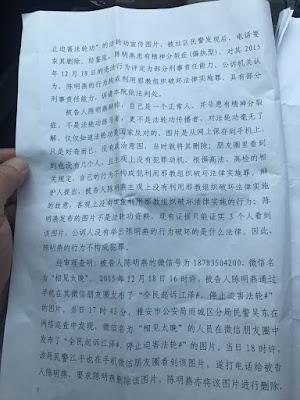 止迫害法轮功"的法轮功宣传图片，被社区民警发现后，电话要
求其删除。经鉴定，陈明燕患有精神分裂症(偏执型)，对其2015
年12月18日的违法行为评定为部分刑事责任能力。公诉机关认
为，陈明燕的行为构成利用邪教组织破坏法律实施罪，具有部分
刑事责任能力，诉请本院依法判处。
被告人陈明燕辩称，自己是一个正常人，并非患有精神分裂
症。不是法轮功练习者，更不是法轮功传播者，对法轮功毫无了
解，仅仅知道法轮功是国家反对的。图片是从网上保存到手机上，
只是好奇而已，没有政治意图，当时就将其删除；朋友圈里看到
的也没有几个人，且主观上没有犯罪动机。根据高法、高检的相
关规定，自己的行为不构成犯利用邪教组织破坏法律实施罪。辩
护人提出，被告人陈明燕主观上没有利用邪教组织破坏法律实施
的故意，客观上没有实施利用邪教组织破坏法律实施的行为；陈
明燕发布的图片不是法轮功资料，现有证据只能证实3个人看到
该图片，公诉人没有举出陈明燕的行为破坏的是什么法律。因此，
陈明燕的行为不构成犯罪。
经审理查明：被告人陈明燕的微信号为18783504200，微信名
为"相见太晚"。2015年12月18日16时许，被告人陈明燕通过
手机在其微信朋友圈发布了"全民起诉江泽#，停止迫害法轮#"
的图片。当日17时43分，雅安市公安局雨城区分局民警吴东在
网络巡查中发现，微信名为"相见太晚"的人员在微信朋友圈中
发布了"全民起诉江泽#，停止迫害法轮#"的图片。当日18时许，
该局民警江平也在手机微信朋友圈看到该图片，遂打电话给被告
人陈明燕，要求陈明燕删除该图片，陈明燕亦将该图片进行删除。